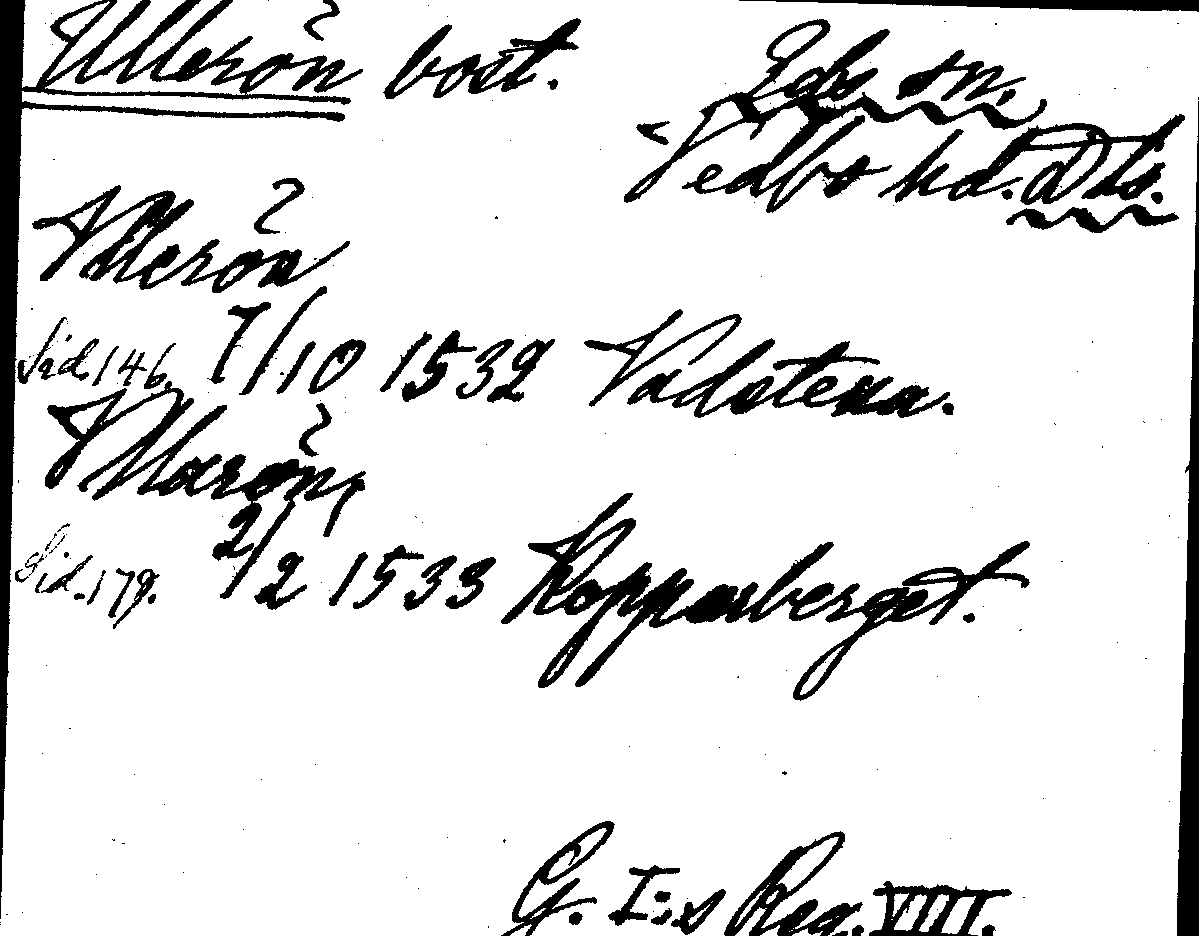 Ullerön bost.
Eds sn.
Vedbo hd. Dls.
Vllerön
Sid. 146. 7/10 1532 Vadstena.
Vllarön,
Sid. 179. 2/2 1533 Kopparberget.
G. I:s Reg. VIII.